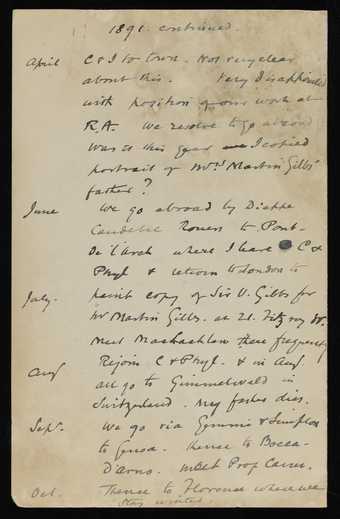 1891. continued.
April C & I to town. Not very clear
about this. Very disappointed
with position of our work at
R.A. We resolve to go abroad
Was it this year I copied
portrait of Mrs Martin Gibbs'
father?
June We go abroad by Dieppe
Caudebec Rouen to Pont-
De l'Arch where I leave C &
Phyl & return to London to
July. paint copy of Sir V. Gibbs for
Mr Martin Gibbs. at 21. Fitzroy St.
meet Maclachlan there frequently
Aug Rejoin C & Phyl. & in Aug
all go to Gimmelwald in
Switzerland. My father dies.
Sept. We go via Gemmi & Simplon
to Genoa. thence to Bocca-
D'arno. meet Prof Carun.
Oct. Thence to Florence where we
stay